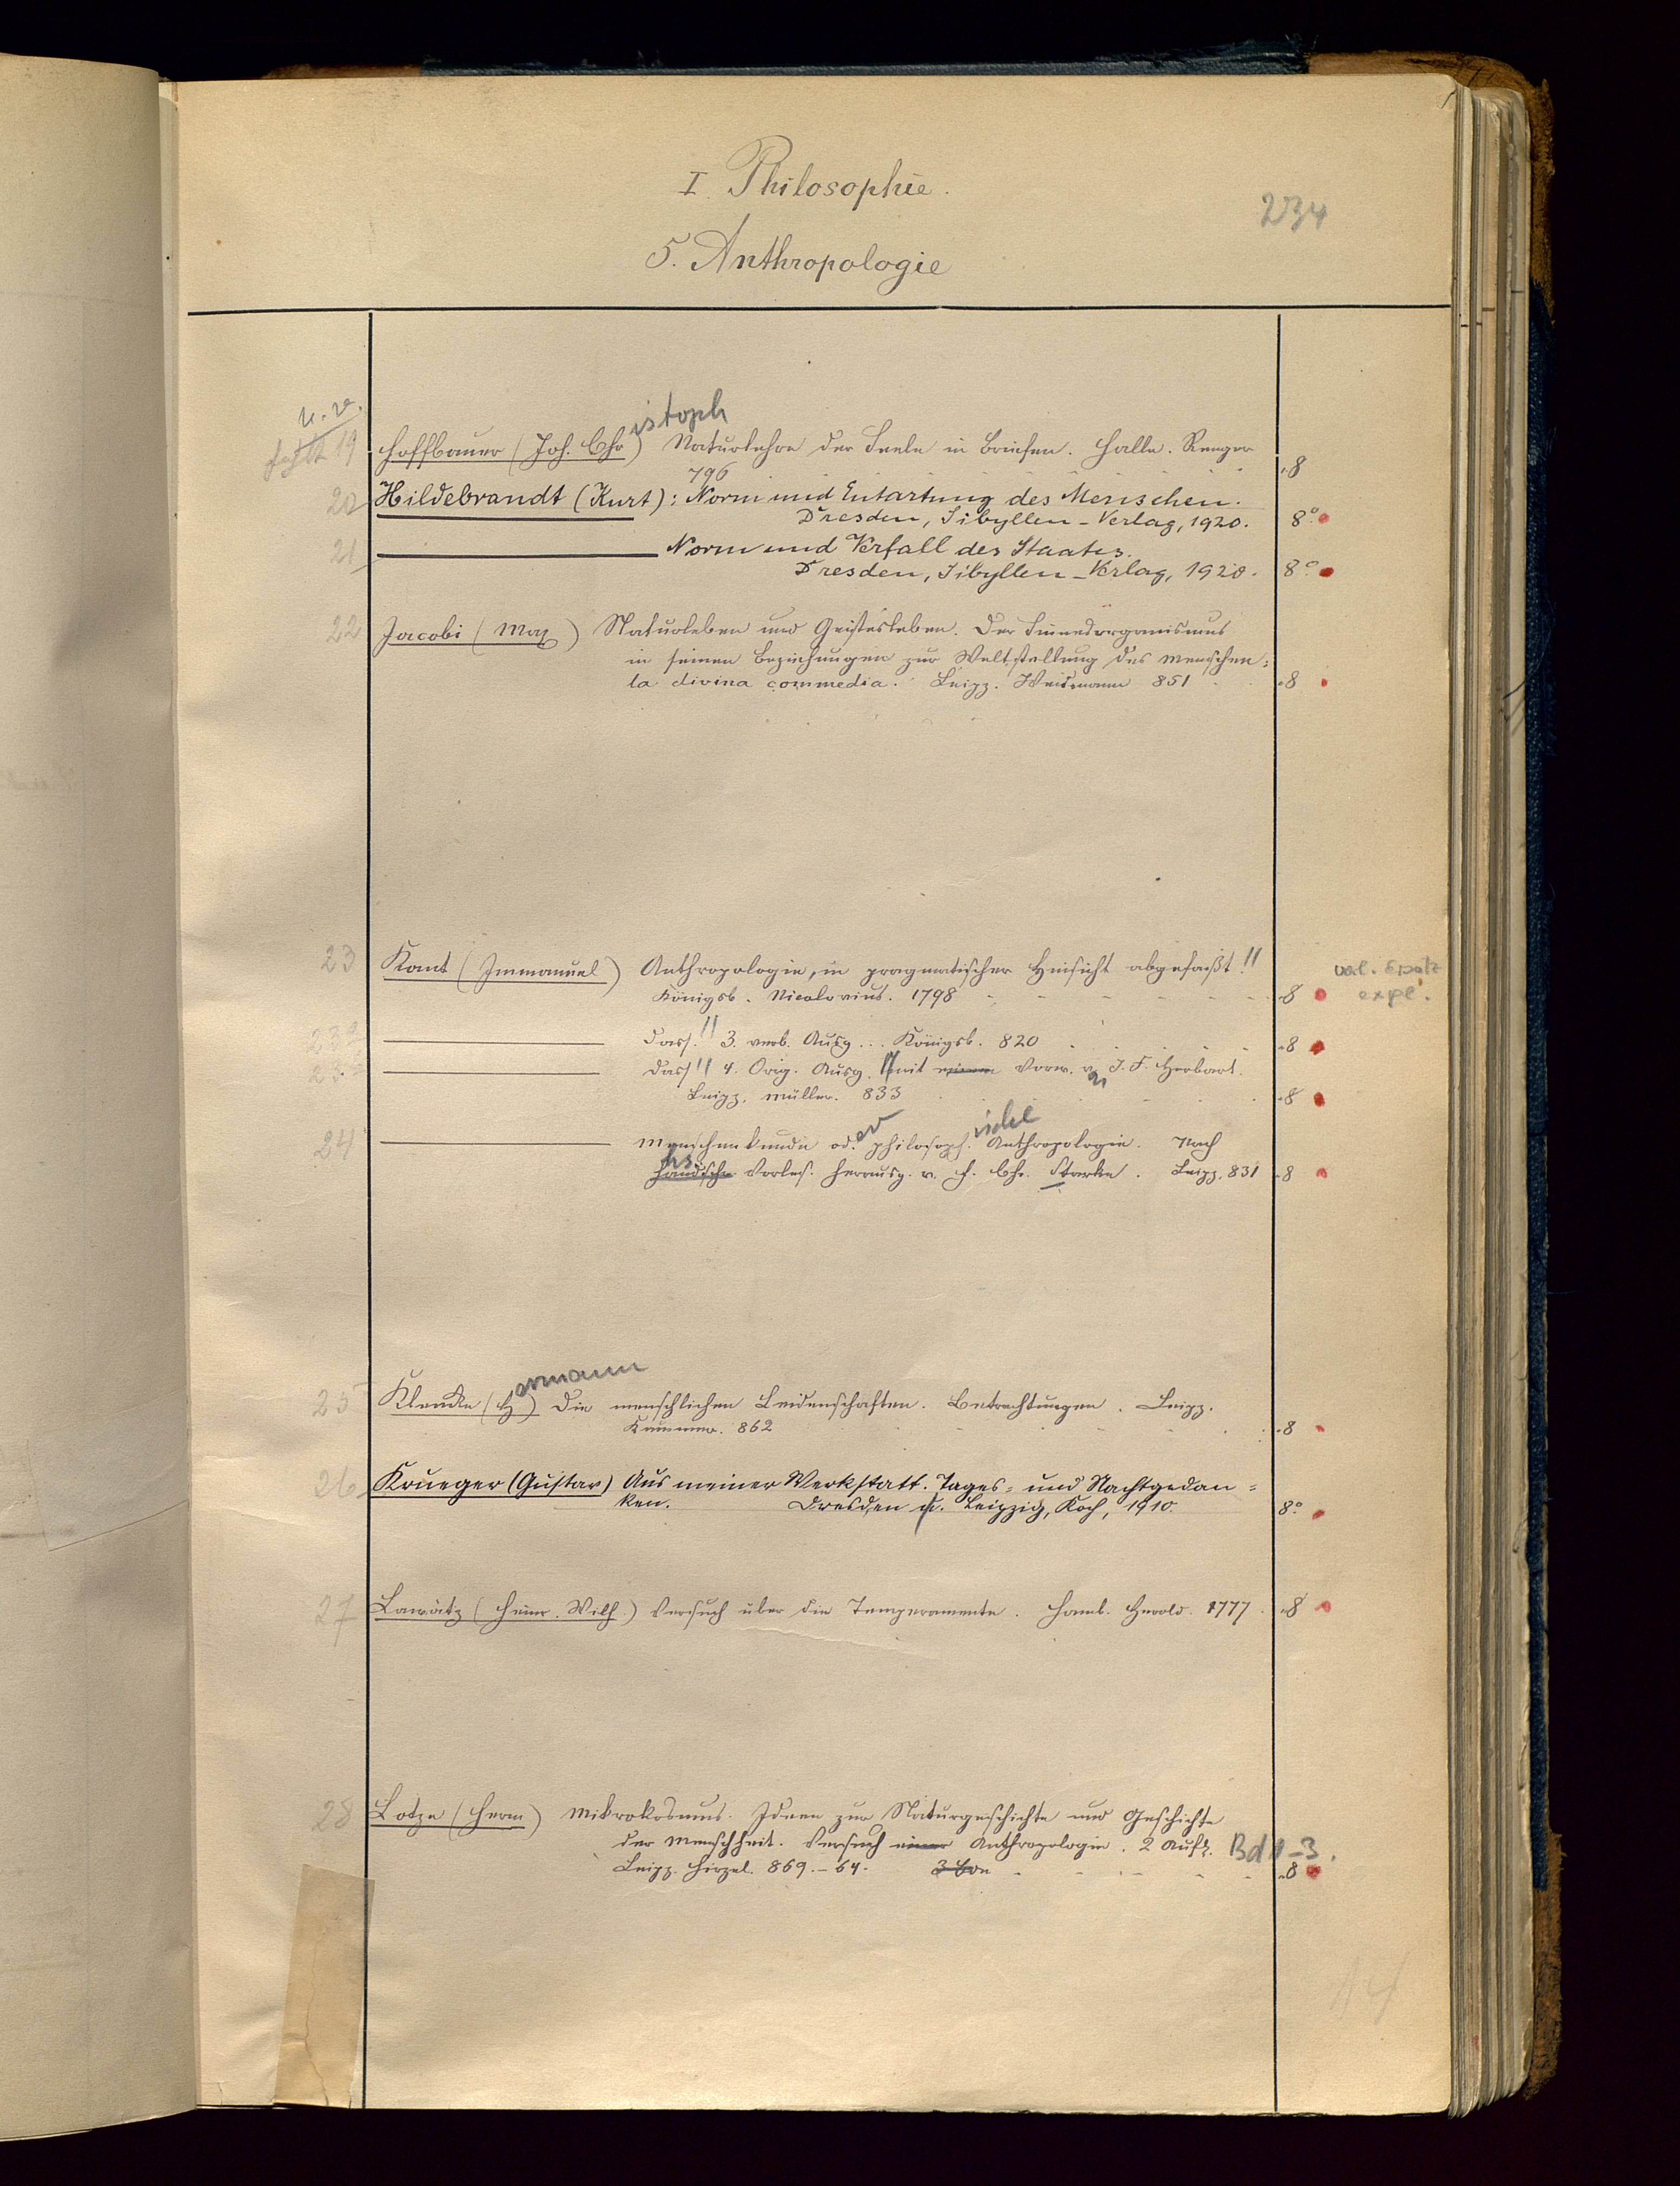 I. Philosophie.
234
5. Anthropologie
istoph
fehlt 19 Hoffbauer (Joh. Chr) Naturlehre der Seele in Briefen. Halle. Renger
796 8
20 Hildebrandt (Kurt): Norm und Entartung des Menschen.
Dresden, Sibyllen-Verlag, 1920. 8°
21 Norm und Verfall des Staates.
Dresden, Sibyllen-Verlag, 1920. 8°
22 Jacobi (Max) Naturleben und Geistesleben. Der Sinnesorganismus
in seinen Beziehungen zur Weltstellung des Menschen.
la divina commedia. Leipz. Weidmann 851 8
23 Kant (Immanuel) Anthropologie, in pragmatischer Hinsicht abgefaßt!!
Königsb. Nicolovius. 1798 8
expl.
Dass!! 3. verb. Ausg... Königsb. 820 8
Dass!! 4. Orig. Ausg. Mit einem Vorw. v. J. F. Herbart.
Leipz. Müller. 833 8
er ische
24 Menschenkunde od. philosoph. Anthropologie. Nach
hs.
handschr. Vorles. herausg. v. F. Chr. Starke. Leipz. 831 8
ermann
25 Klencke (H) Die menschlichen Leidenschaften. Betrachtungen. Leipz.
Kummer. 862 8
26 Krueger (Gustav) Aus meiner Werkstatt. Tages- und Nachtgedan-
ken. Dresden u. Leipzig, Koch, 1910. 8°
27 Lawätz (Heinr. Wilh.) Versuch über die Temperamente. Hamb. Herold. 1777 8
28 Lotze (Herm) Mikrokosmus. Ideen zur Naturgeschichte und Geschichte
der Menschheit. Versuch einer Anthropologie. 2 Aufl. Bd 1-3.
Leipz. Hirzel. 869.-64. 8
14